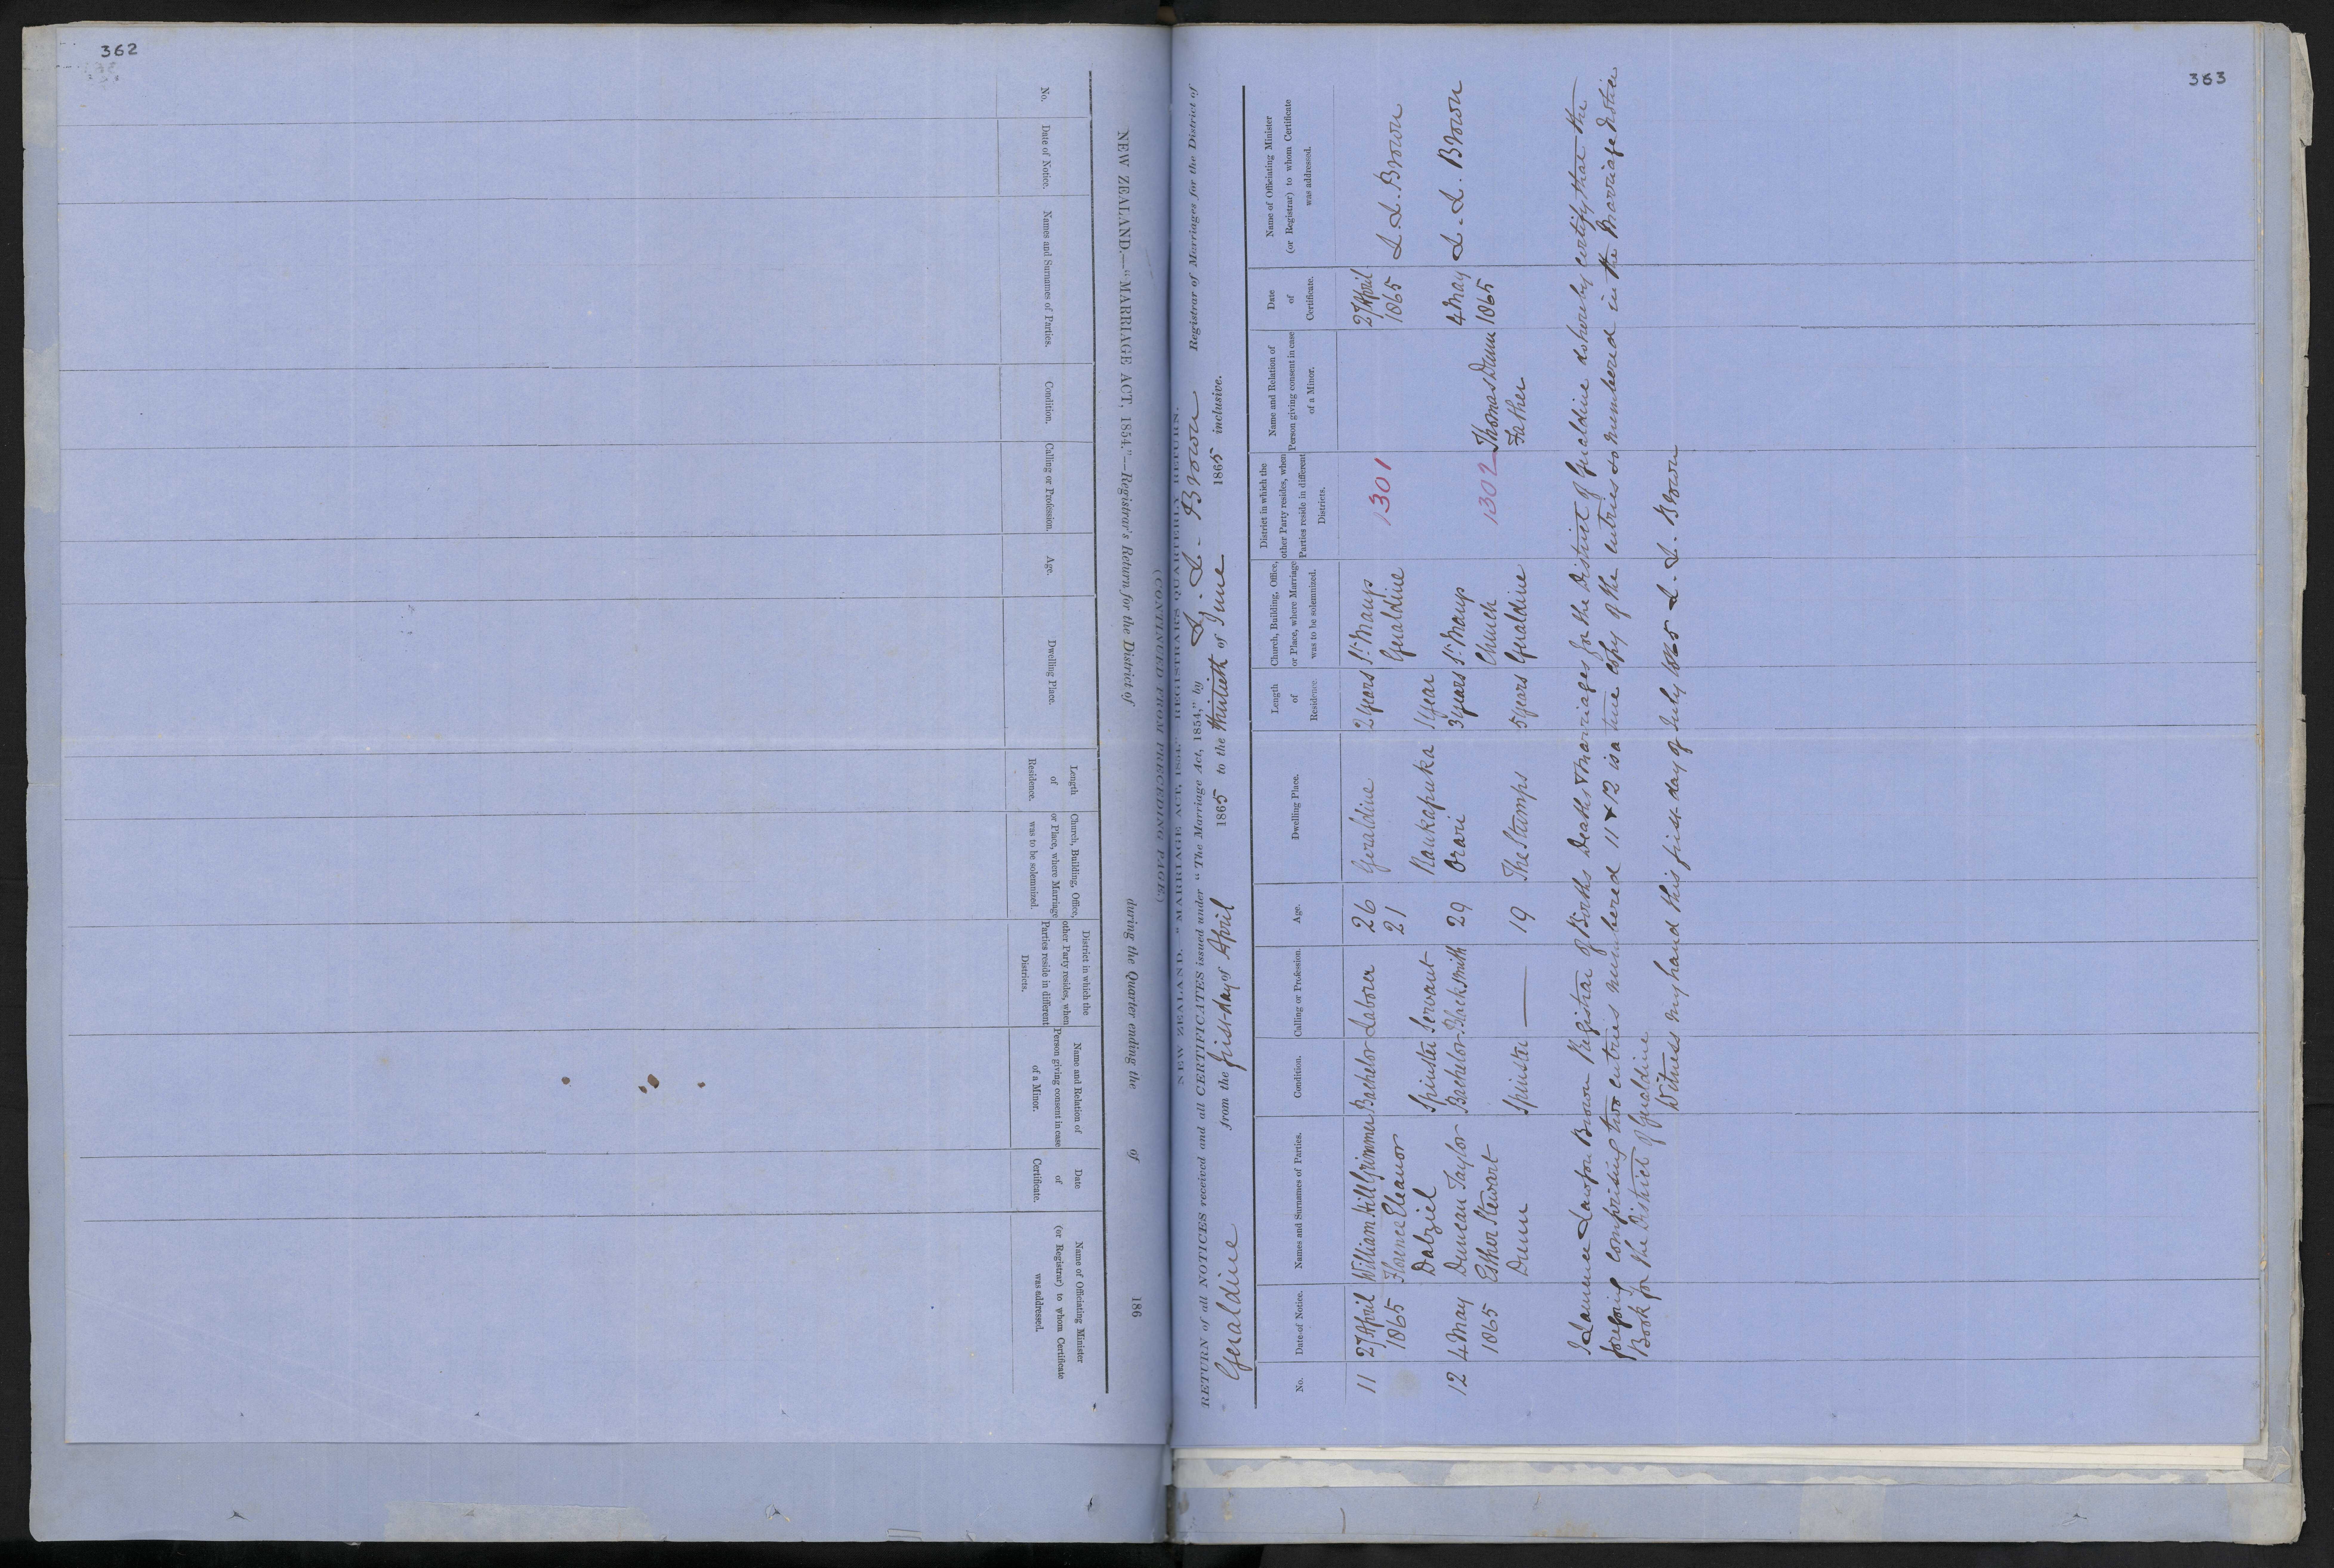 362
NEW ZEALAND,—"MARRIAGE ACT, 1854."—Registrar's Return for the District of during the Quarter ending the of 186
No. Date of Notice. Names and Surnames of Parties. Condition. Calling or Profession. Age. Dwelling Place. Length of Residence. Church, Building, Office, or Place, where Marriage was to be solemnized. District in which the other Party resides, when Parties reside in different Districts. Name and Relation of Person giving consent in case of a Minor. Date of Certificate. Name of Officiating Minister (or Registrar) to whom Certificate was addressed.
(CONTINUED FROM PRECEDING PAGE.)
363
NEW ZEALAND. "MARRIAGE ACT, 1854." REGISTRAR'S QUARTERLY RETURN.
RETURN of all NOTICES received and all CERTIFICATES issued under "The Marriage Act, 1854," by L. L. Brown Registrar of Marriages for the District of
Geraldine from the first day of April 1865 to the thirtieth of June 1865 inclusive.
No. Date of Notice. Names and Surnames of Parties. Condition. Calling or Profession. Age. Dwelling Place. Length of Residence. Church, Building, Office, or Place, where Marriage was to be solemnized. District in which the other Party resides, when Parties reside in different Districts. Name and Relation of Person giving consent in case of a Minor. Date of Certificate. Name of Officiating Minister (or Registrar) to whom Certificate was addressed.
11 27 April William Hill Grimmer Bachelor Laborer 26 Geraldine 2 years St. Marys 1301 27 April
1865 Florence Eleanor 21 Geraldine 1865 L. L. Brown
Dalziel Spinster Servant Raukapuka 1 year
12 4 May Duncan Taylor Bachelor Blacksmith 29 Orari 3 years St. Marys 4 May L. L. Brown
1865 Esther Stewart Church 1302 Thomas Dunn 1865
Dunn Spinster — 19 The Stumps 5 years Geraldine Father
I Lawrence Lawson Brown Registrar of Births Deaths & Marriages for the District of Geraldine do hereby certify that the
foregoing comprising two entries numbered 11 & 12 is a true copy of the entries so numbered in the Marriage Notice
Book for the District of Geraldine
Witness my hand this first day of July 1865 L. L. Brown